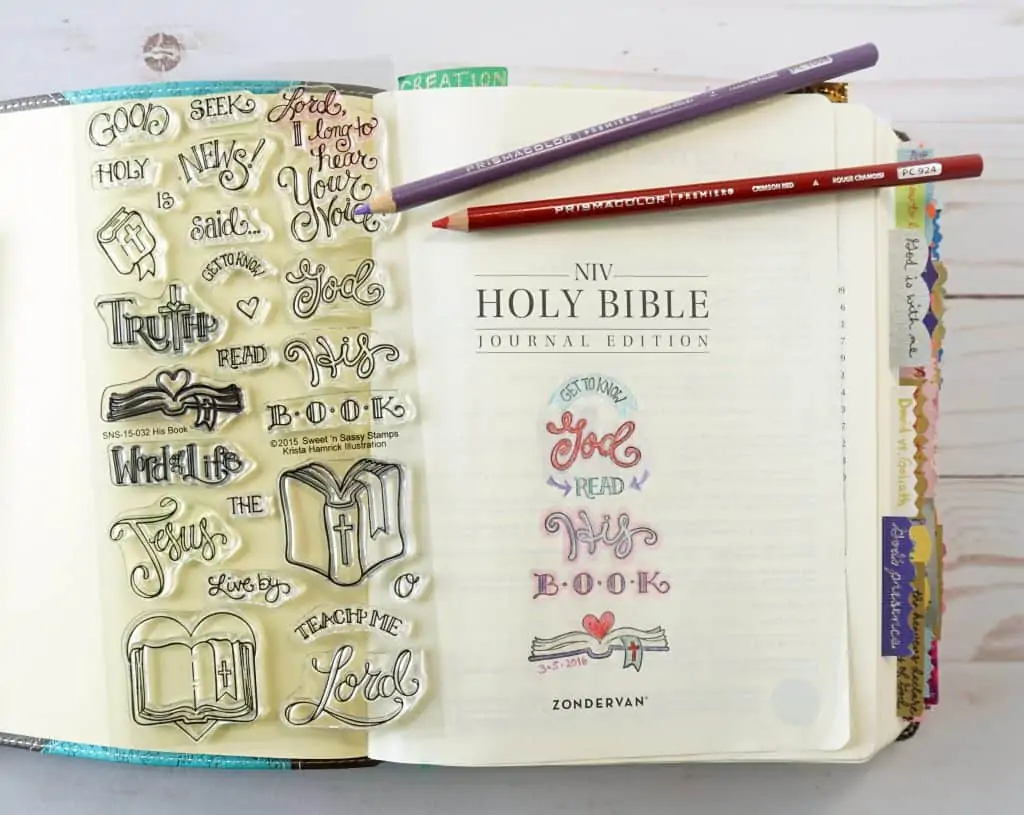 CREATION
PRISMACOLOR PREMIER
PRISMACOLOR PREMIER CRIMSON RED ROUGE CRAMOISI PC 924
GOOD
SEEK
Lord,
I long to
hear
Your
Voice
HOLY
NEWS!
is
said...
GET TO KNOW
God
TRUTH
READ
His
B·O·O·K
SNS-15-032 His Book
©2015 Sweet 'n Sassy Stamps
Krista Hamrick Illustration
Word of Life
THE
Jesus
Live by
O
TEACH ME
Lord
NIV
HOLY BIBLE
JOURNAL EDITION
GET TO KNOW
God
READ
His
B·O·O·K
3-5-2016
ZONDERVAN
God is with me
David vs. Goliath
God's presence